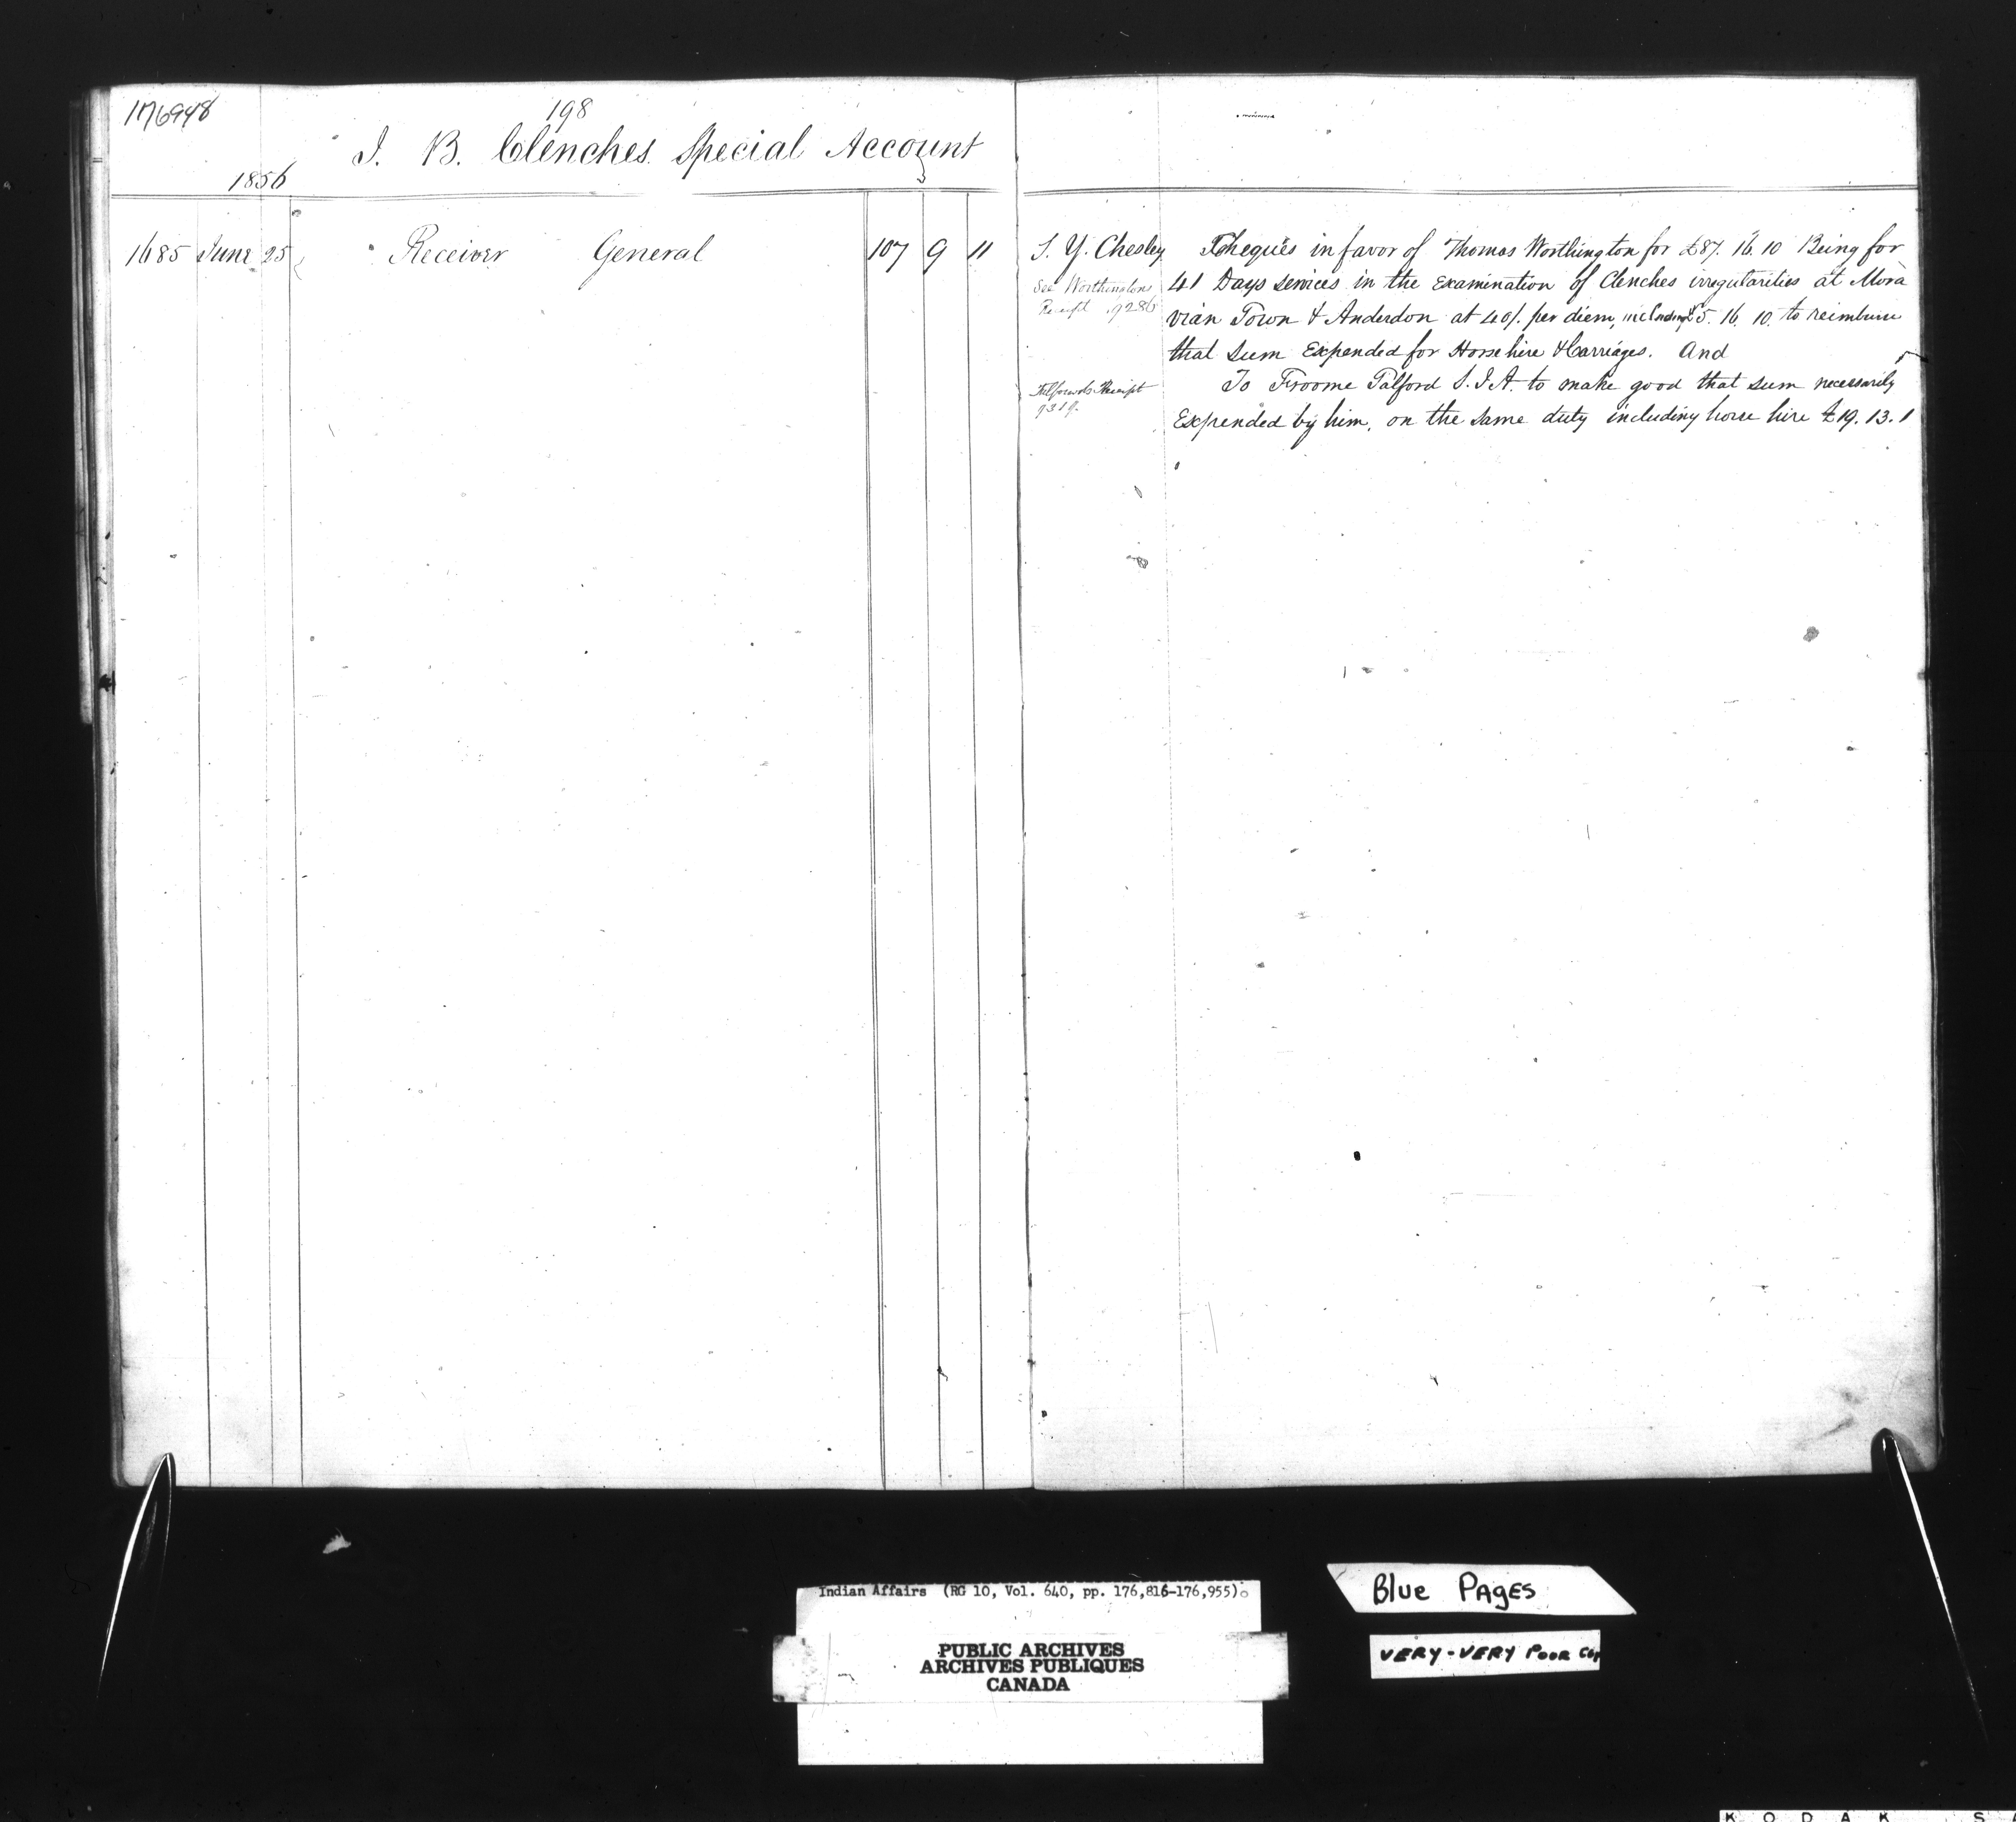 176948
198
J. B. Clenches Special Account
1856
1685 June 25 Receiver General 107 9 11
S. Y. Chesley Cheques in favor of Thomas Worthington for £87. 16. 10 Being for
See Worthingtons
Receipt 9286
41 Days services in the Examination of Clenches irregularities at Mora
vian Town & Anderdon at 40/. per diem, including £5. 16. 10. to reimburse
that sum Expended for Horse hire & Carriages. And
Talfords Receipt
9319.
To Froome Talford S. I. A. to make good that sum necessarily
Expended by him, on the same duty including horse hire £19. 13. 1
Indian Affairs (RG 10, Vol. 640, pp. 176,816-176,955)
PUBLIC ARCHIVES
ARCHIVES PUBLIQUES
CANADA
Blue Pages
VERY-VERY POOR
KODAK